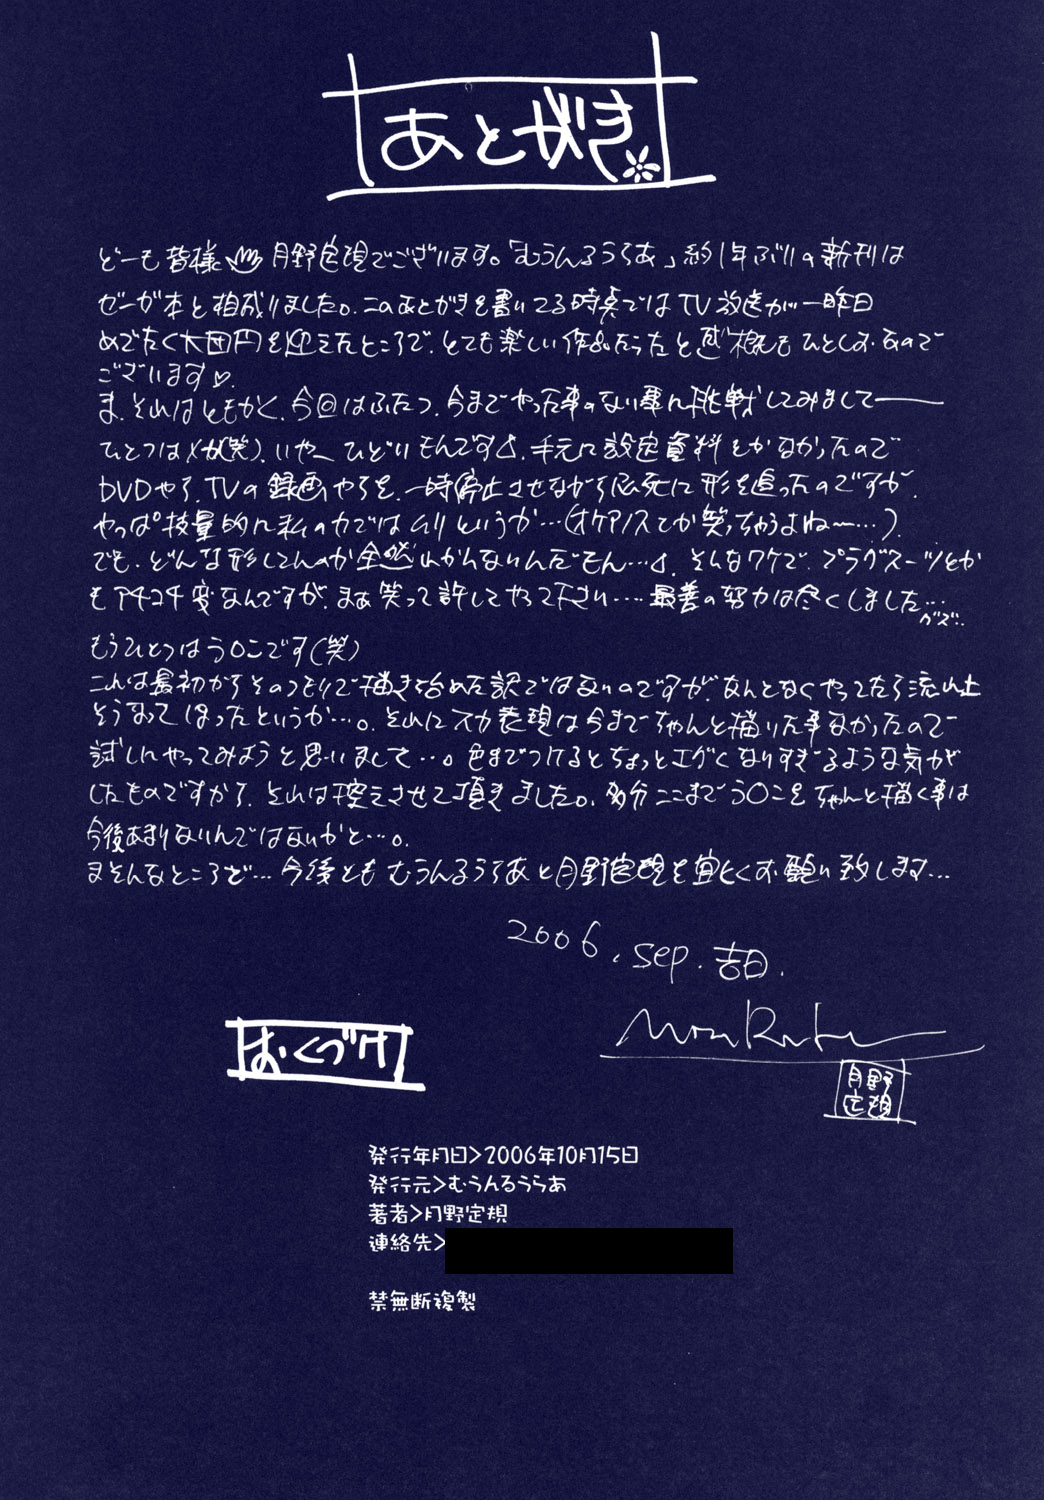 あとがき
どーも皆様 月野定規でございます。「むうんるうらあ」約1年ぶりの新刊は
ゼーガ本と相成りました。このあとがきを書いてる時点ではTV放送が一昨日
めでたく大団円を迎えたところで、とても楽しい作品だったと感慨もひとしおなので
ございます♡.
ま、それはともかく、今回はふたつ、今までやった事のない事に挑戦してみまして――
ひとつはメカ(笑)、いや、ひどいもんです、手元に設定資料とかなかったので
DVDやら、TVの録画やらを、一時停止させながら必死に形を追ったのですが、
やっぱ技量的に私の力ではムリというか…(オケアノスとか笑っちゃうよね〜…).
でも、どんな形してんのか全然わかんないんだもん…、そんなワケで、プラグスーツとか
もアチコチ変なんですが、まぁ笑って許してやって下さい…最善の努力は尽くしました…
グズ..
もうひとつはう○こです(笑)
これは最初からそのつもりで描き始めた訳ではないのですが、なんとなくやってたら流れ上
そうなってしまったというか…。それにスカ表現は今までちゃんと描いた事なかったので
試しにやってみようと思いまして…。色までつけるとちょっとエグくなりすぎるような気が
したものですから、それは控えさせて頂きました。多分ここまでう○こをちゃんと描く事は
今後あまりないんではないかと…。
まそんなところで…今後ともむうんるうらあと月野定規を宜しくお願い致します…
2006.sep.吉日.
月野
定規
おくづけ
発行年月日>2006年10月15日
発行元>むうんるうらあ
著者>月野定規
連絡先>
禁無断複製